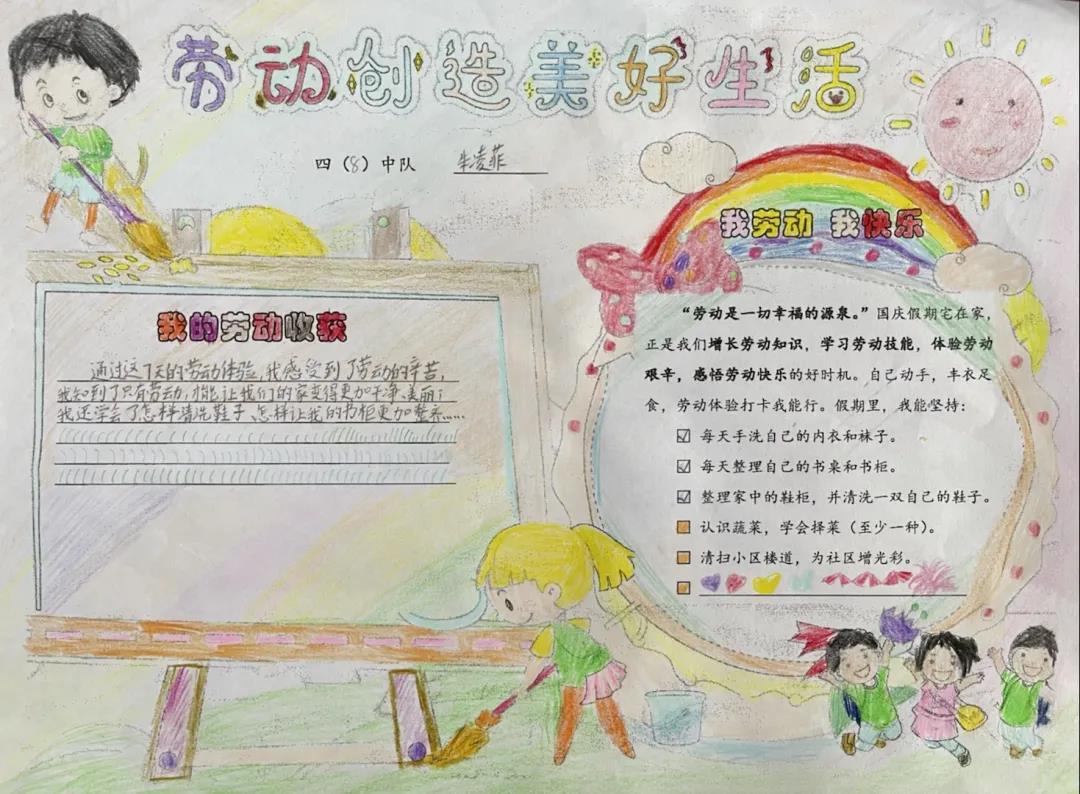 劳动创造美好生活
四（8）中队 朱凌菲
我的劳动收获
通过这7天的劳动体验，我感受到了劳动的辛苦，
我知到了只有劳动，才能让我们的家变得更加干净、美丽；
我还学会了怎样清洗鞋子、怎样让我的书柜更加整齐……
我劳动 我快乐
“劳动是一切幸福的源泉。”国庆假期宅在家，
正是我们增长劳动知识，学习劳动技能，体验劳动
艰辛，感悟劳动快乐的好时机。自己动手，丰衣足
食，劳动体验打卡我能行。假期里，我能坚持：
☑ 每天手洗自己的内衣和袜子。
☑ 每天整理自己的书桌和书柜。
☑ 整理家中的鞋柜，并清洗一双自己的鞋子。
□ 认识蔬菜，学会择菜（至少一种）。
□ 清扫小区楼道，为社区增光彩。